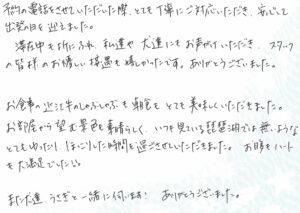 予約の電話をさせていただいた際、とても丁寧にご対応いただき、安心して
出発の日を迎えました。
滞在中も折にふれ、私達や犬達にもお声がけいただき、スタッフ
の皆様のお優しい接遇も嬉しかったです。ありがとうございました。
お食事の近江牛のしゃぶしゃぶも朝食もとても美味しくいただきました。
お部屋から望む景色も素晴らしく、いつも見ている琵琶湖では無いような
とてもゆったり、ほっこりした時間を過ごさせていただきました。お腹もハート
も大満足でした。
また犬達、うさぎと一緒に伺います! ありがとうございました。